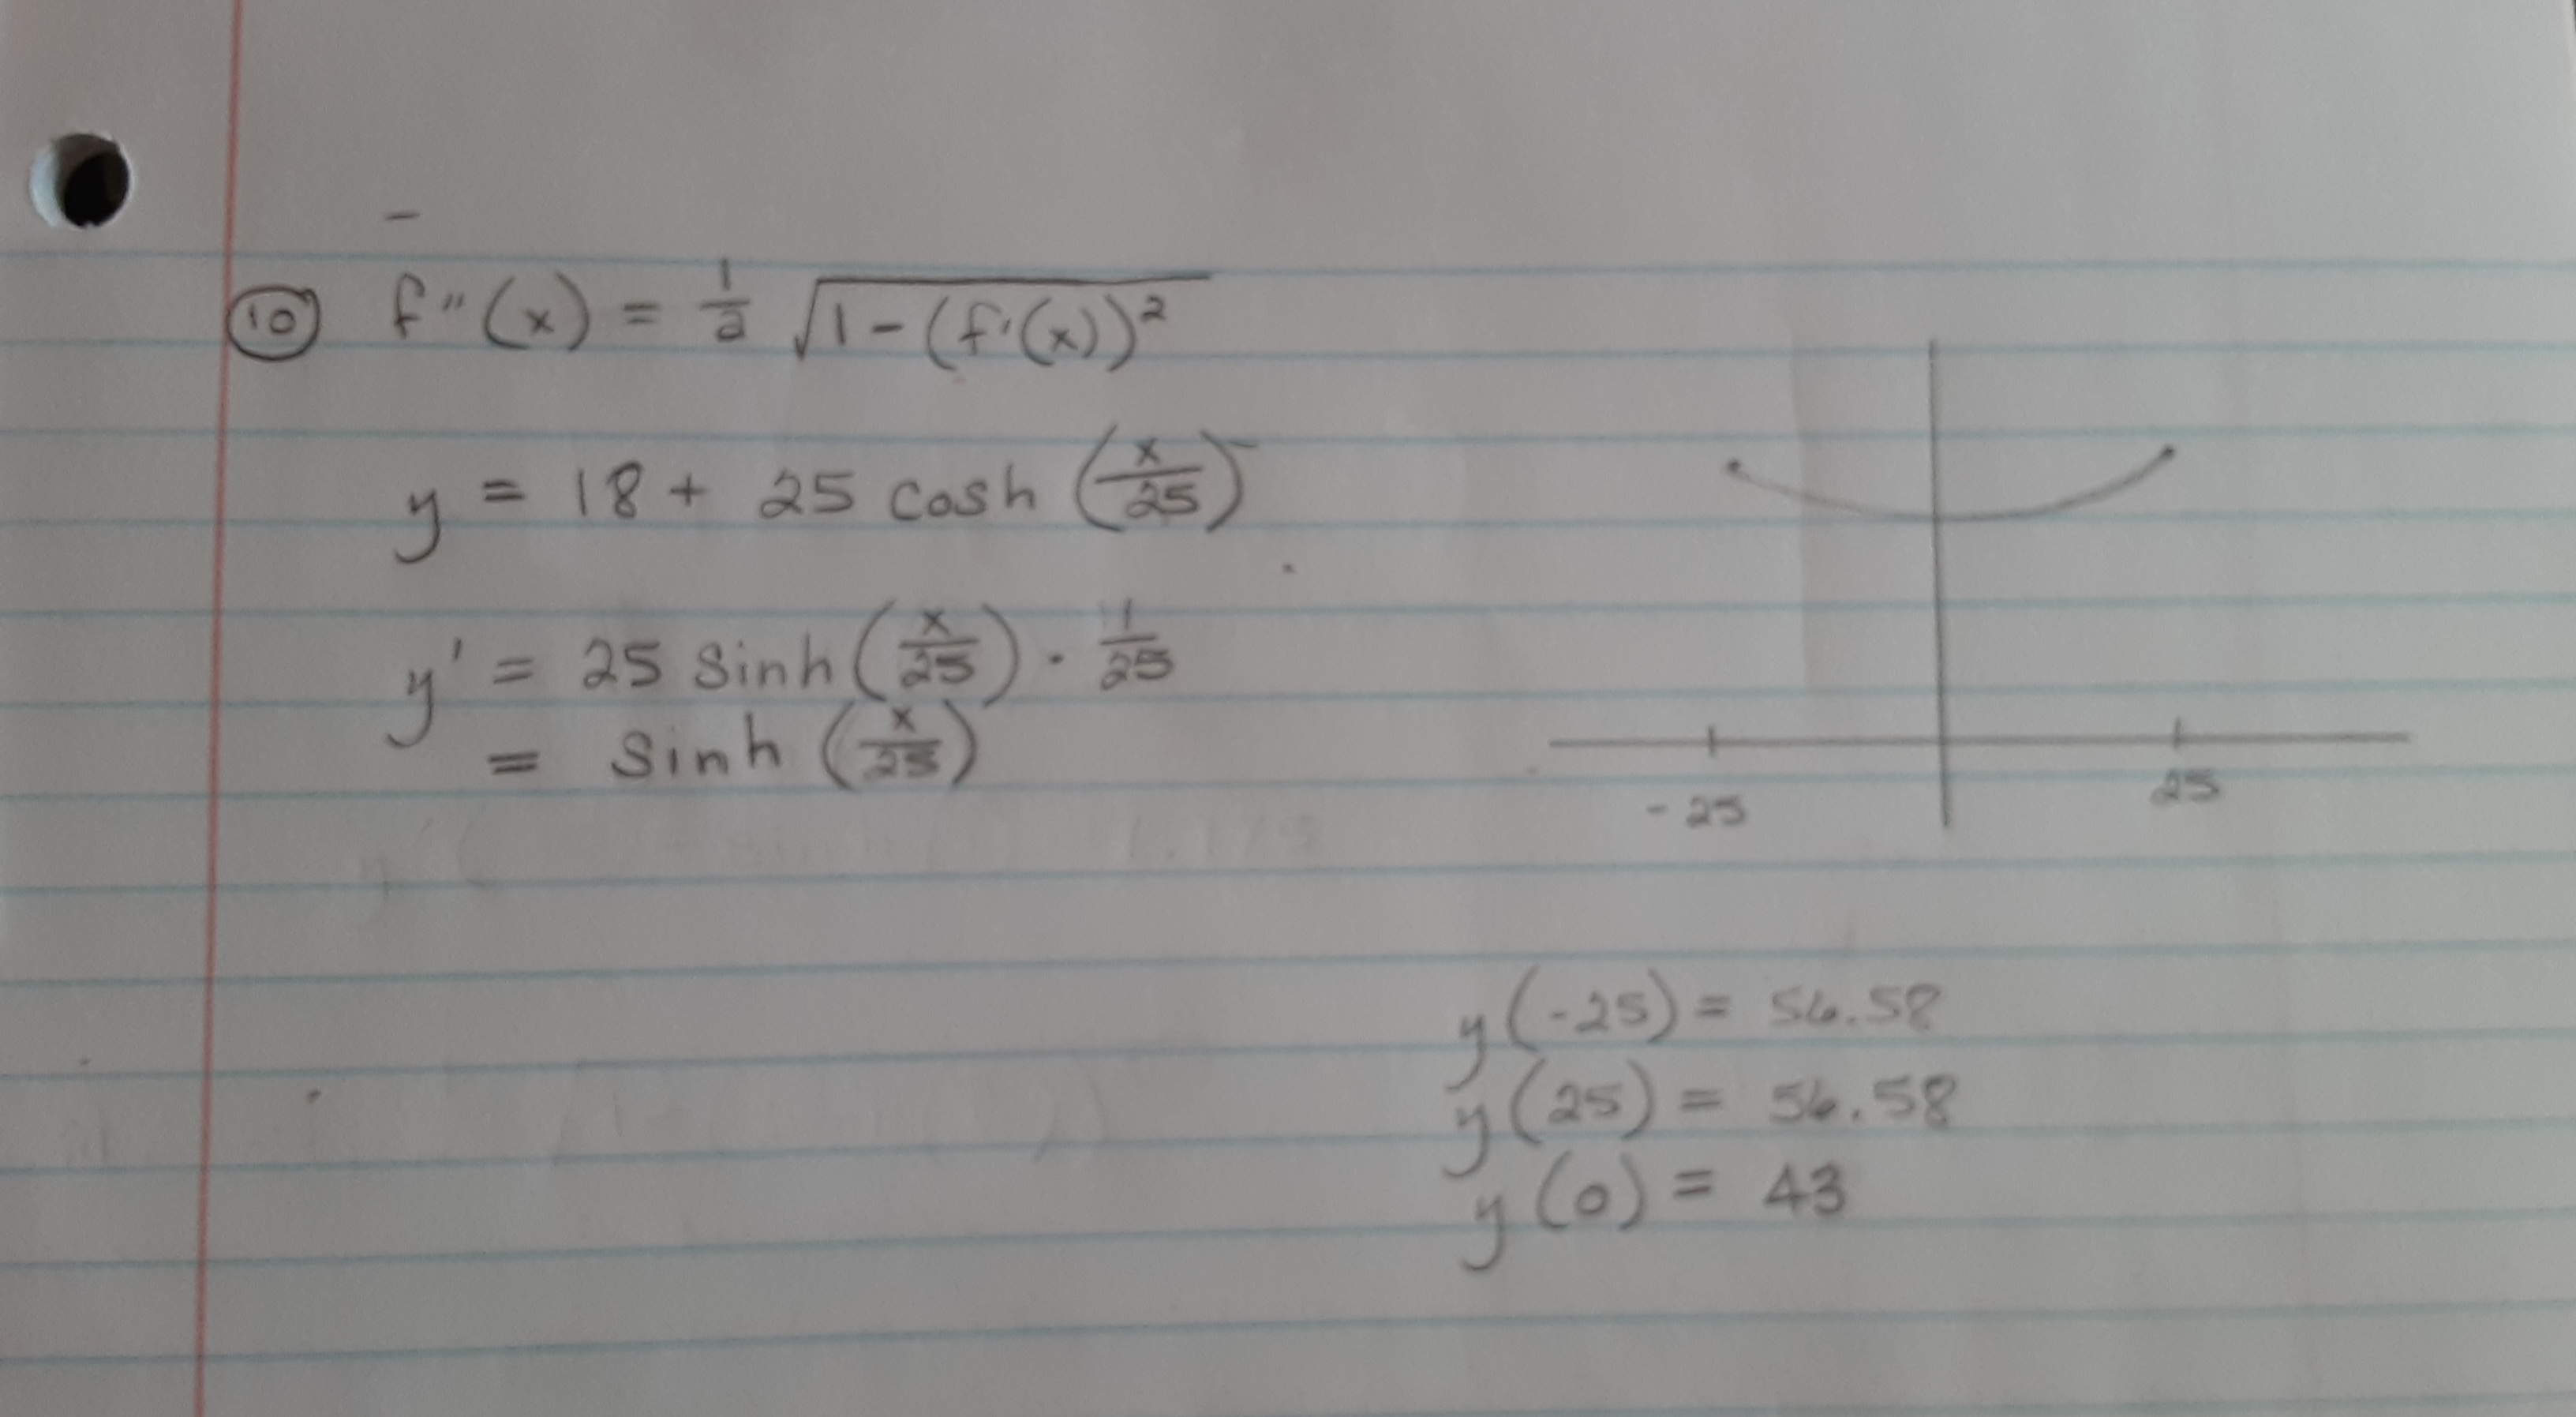 ⑩ f''(x) = 1/2 √(1-(f'(x))²
y = 18 + 25 cosh (x/25)
y' = 25 sinh (x/25) · 1/25
= sinh (x/25)
-25
25
y(-25) = 56.58
y(25) = 56.58
y(0) = 43